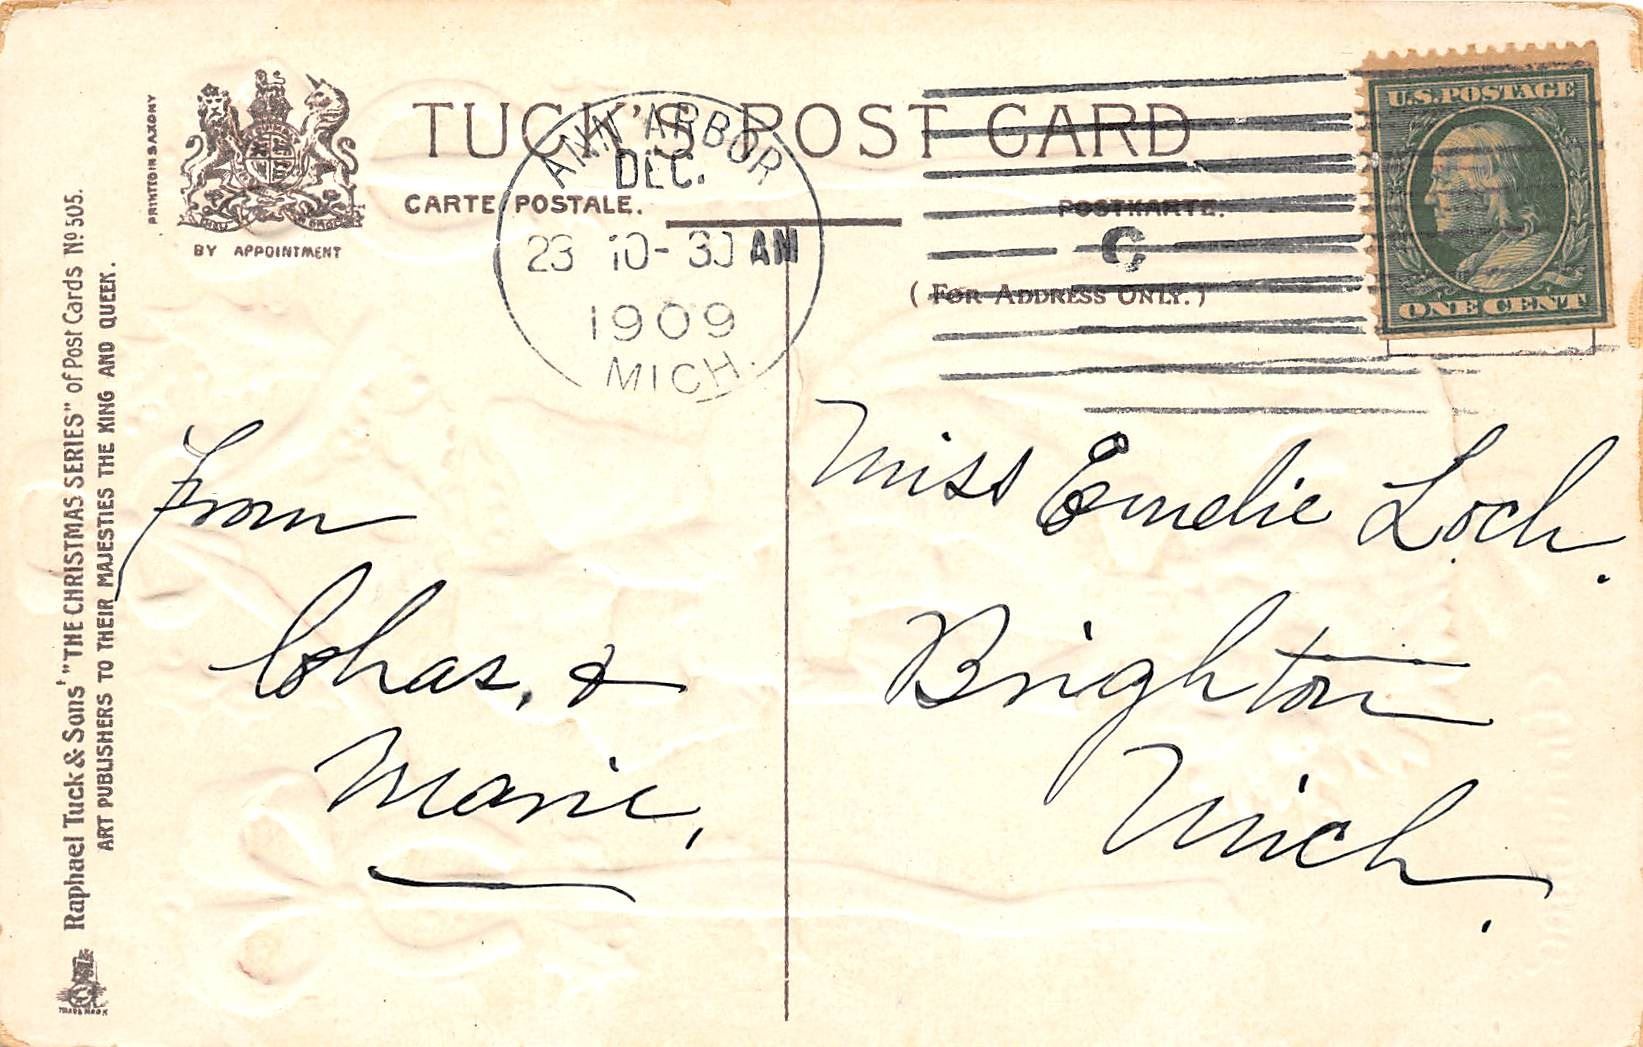 TUCK'S POST CARD
CARTE POSTALE.
POSTKARTE.
(FOR ADDRESS ONLY.)
PRINTED IN SAXONY
BY APPOINTMENT
Raphael Tuck & Sons' "THE CHRISTMAS SERIES" of Post Cards No 505.
ART PUBLISHERS TO THEIR MAJESTIES THE KING AND QUEEN.
TRADE MARK
ANN ARBOR
DEC.
23 10-30 AM
1909
MICH.
C
U.S. POSTAGE
ONE CENT
From
Chas, &
Marie,
Miss Emelie Loch.
Brighton
Mich.